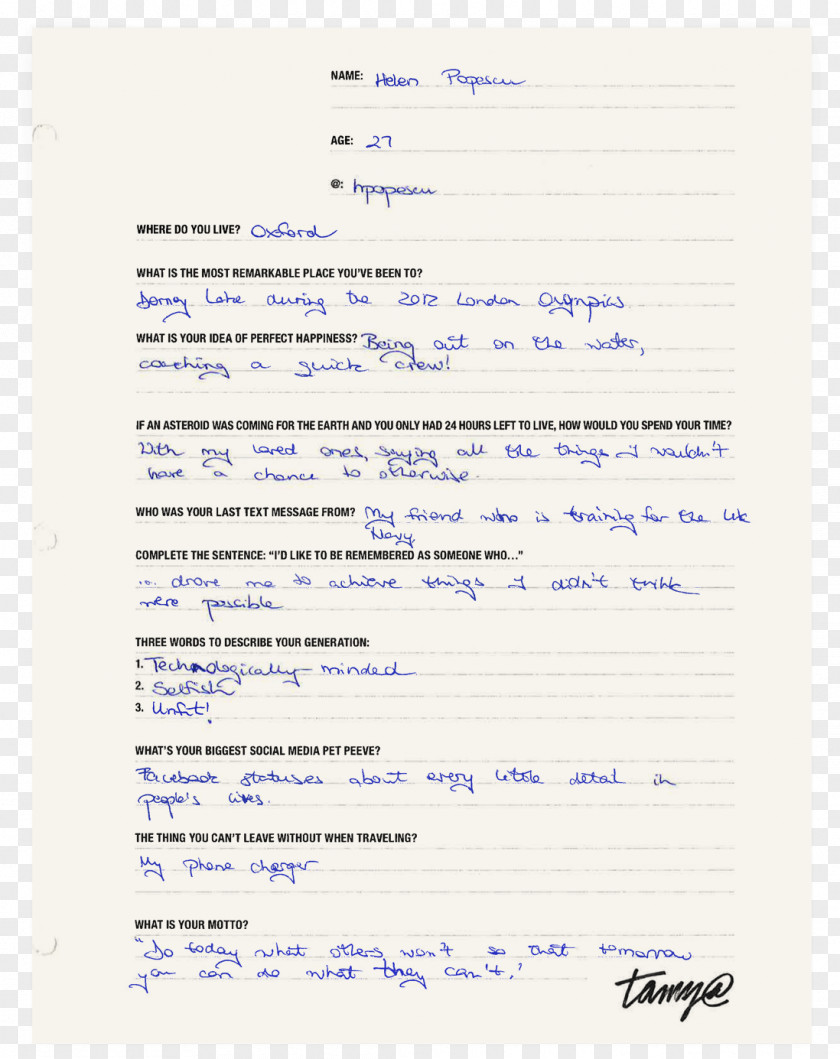 NAME: Helen Popescu
AGE: 27
@: hpopescu
WHERE DO YOU LIVE? Oxford
WHAT IS THE MOST REMARKABLE PLACE YOU'VE BEEN TO?
Dorney Lake during the 2012 London Olympics
WHAT IS YOUR IDEA OF PERFECT HAPPINESS? Being out on the water,
coaching a quick crew!
IF AN ASTEROID WAS COMING FOR THE EARTH AND YOU ONLY HAD 24 HOURS LEFT TO LIVE, HOW WOULD YOU SPEND YOUR TIME?
With my loved ones, saying all the things I wouldn't
have a chance to otherwise.
WHO WAS YOUR LAST TEXT MESSAGE FROM? My friend who is training for the UK
Navy
COMPLETE THE SENTENCE: "I'D LIKE TO BE REMEMBERED AS SOMEONE WHO..."
... drove me to achieve things I didn't think
were possible
THREE WORDS TO DESCRIBE YOUR GENERATION:
1. Technologically-minded
2. Selfish
3. Unfit!
WHAT'S YOUR BIGGEST SOCIAL MEDIA PET PEEVE?
Facebook statuses about every little detail in
people's lives.
THE THING YOU CAN'T LEAVE WITHOUT WHEN TRAVELING?
My phone charger
WHAT IS YOUR MOTTO?
"Do today what others won't so that tomorrow
you can do what they can't."
tamy@